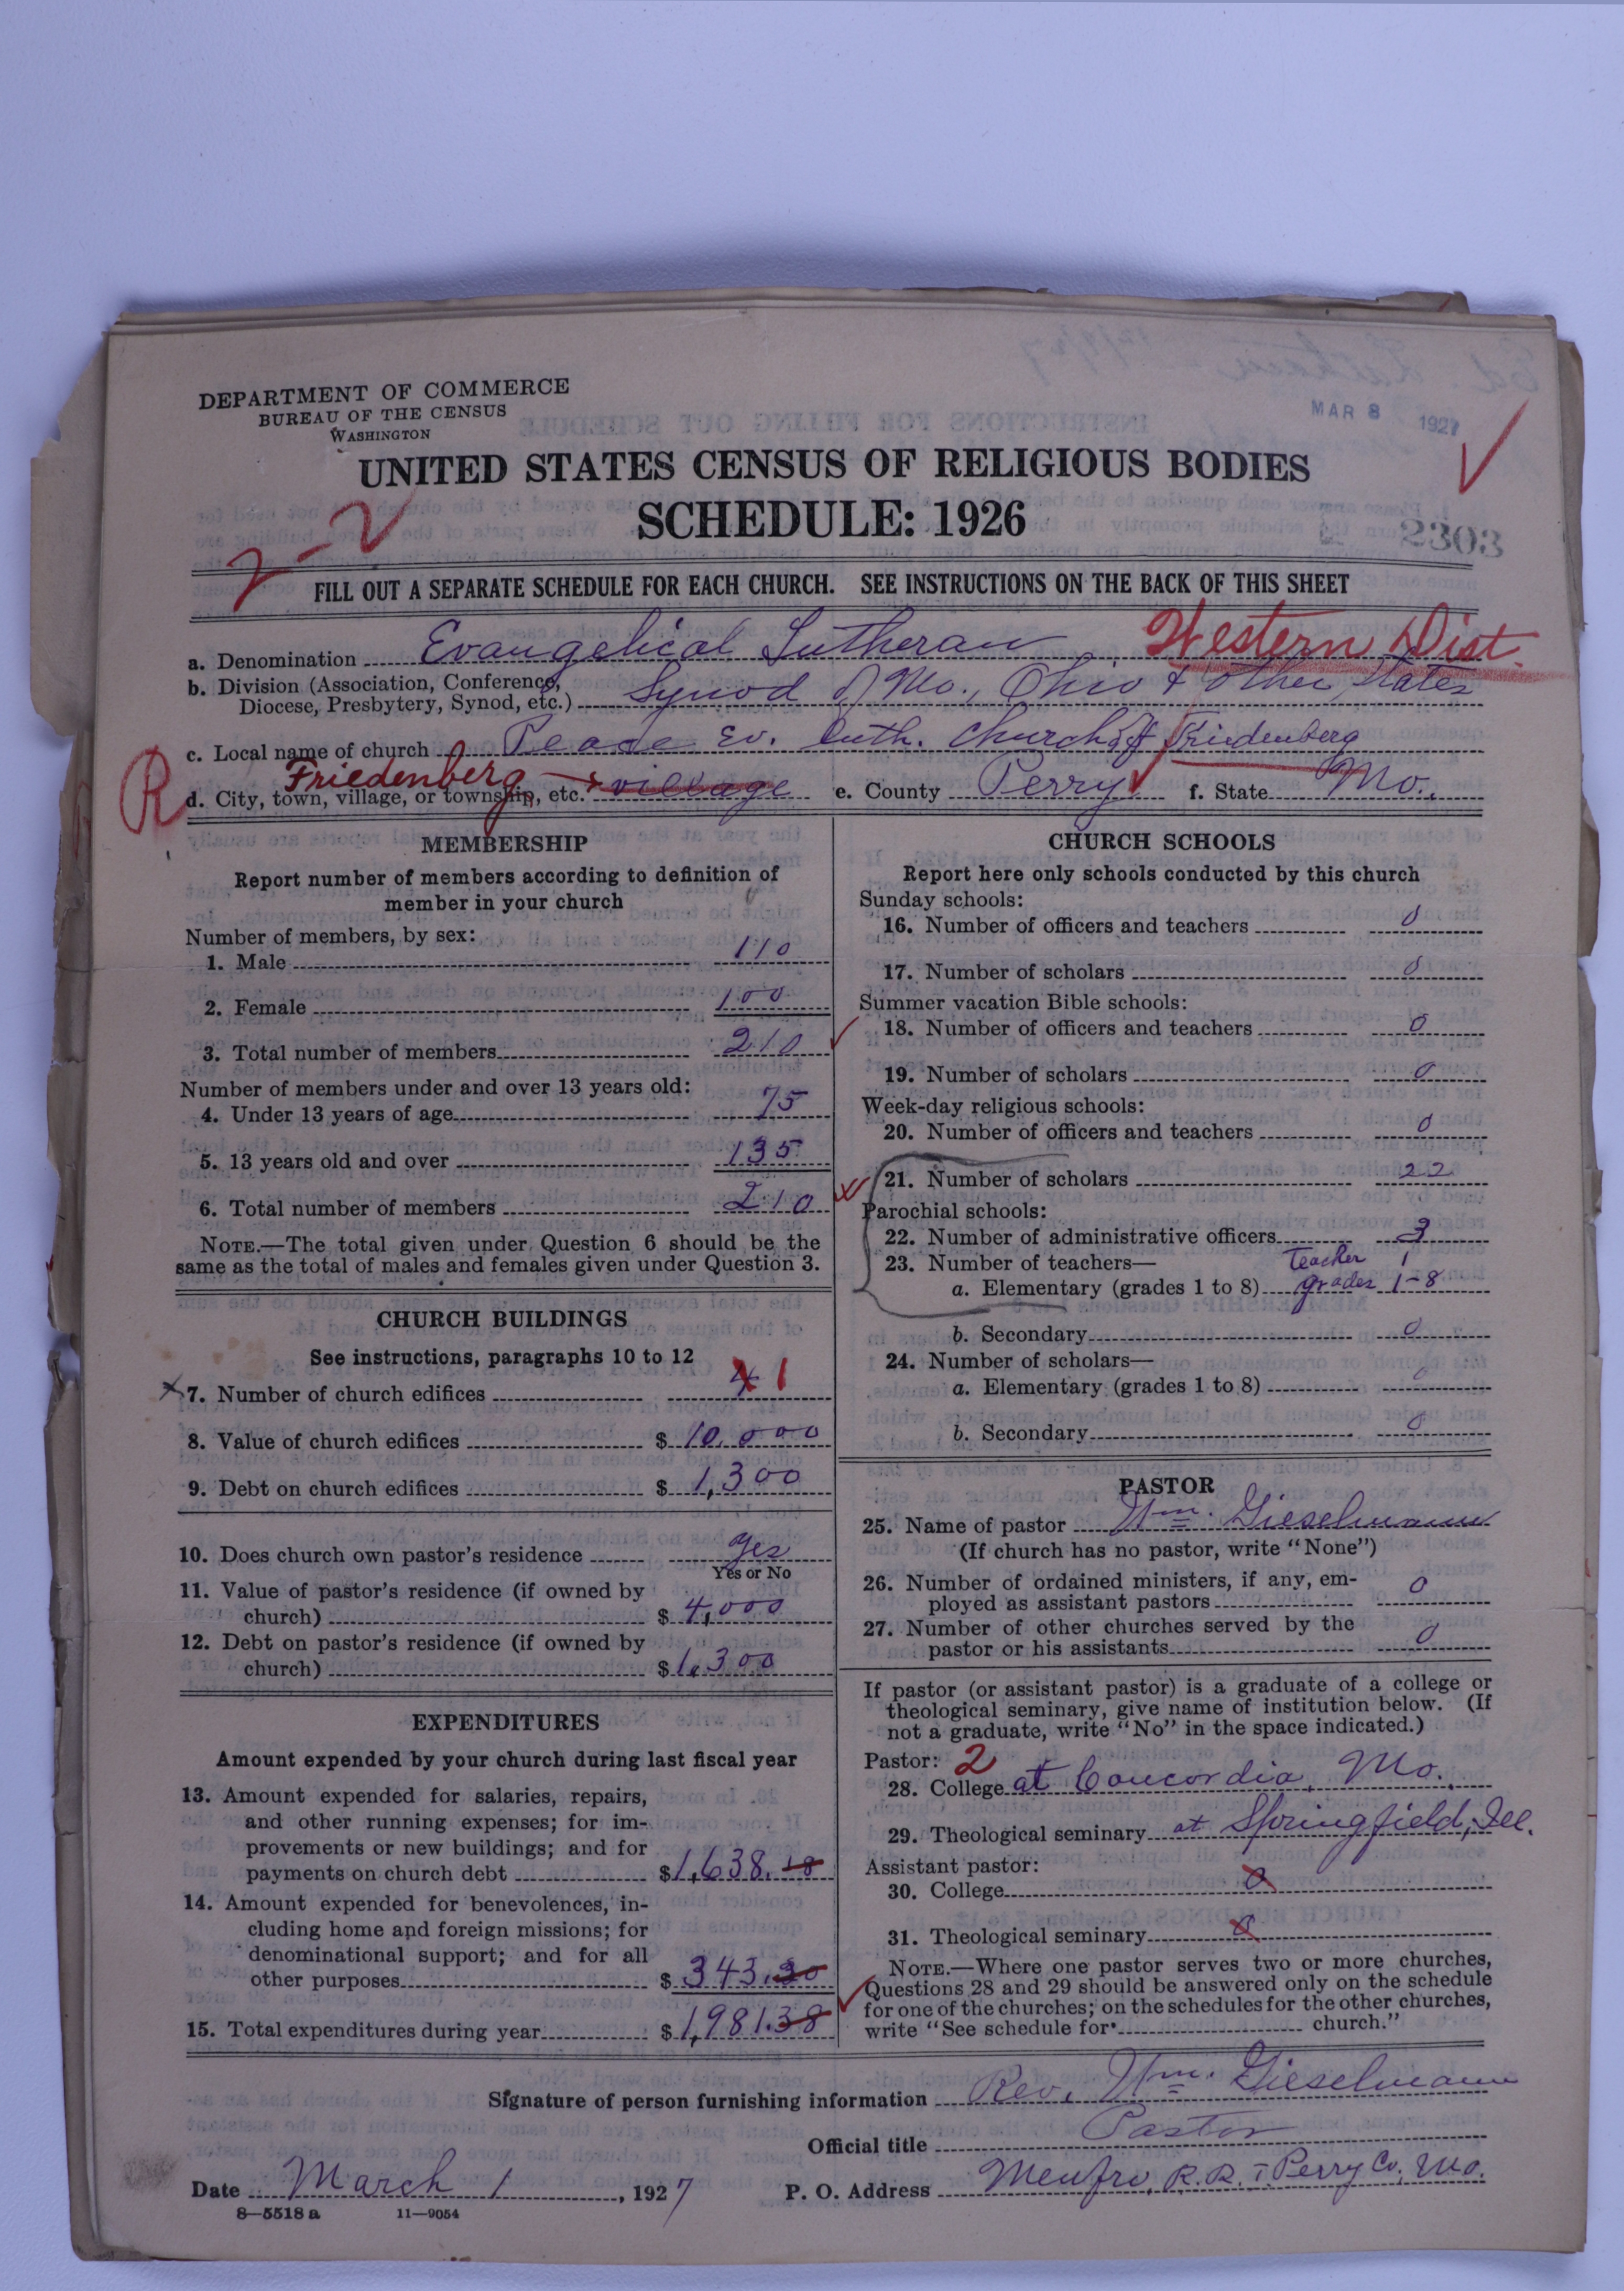 DEPARTMENT OF COMMERCE
BUREAU OF THE CENSUS
WASHINGTON
MAR 8 1927
UNITED STATES CENSUS OF RELIGIOUS BODIES
SCHEDULE: 1926
2-2
2303
FILL OUT A SEPARATE SCHEDULE FOR EACH CHURCH. SEE INSTRUCTIONS ON THE BACK OF THIS SHEET
a. Denomination Evangelical Lutheran Western Dist.
b. Division (Association, Conference, Diocese, Presbytery, Synod, etc.) Synod of Mo., Ohio & other States
c. Local name of church Peace Ev. Luth. Church of Friedenberg
R d. City, town, village, or township, etc. Friedenberg village e. County Perry f. State Mo.
MEMBERSHIP
Report number of members according to definition of
member in your church
Number of members, by sex:
1. Male 110
2. Female 100
3. Total number of members 210
Number of members under and over 13 years old:
4. Under 13 years of age 75
5. 13 years old and over 135
6. Total number of members 210
NOTE.—The total given under Question 6 should be the
same as the total of males and females given under Question 3.
CHURCH BUILDINGS
See instructions, paragraphs 10 to 12
7. Number of church edifices 4 1
8. Value of church edifices $ 10,000
9. Debt on church edifices $ 1,300
10. Does church own pastor's residence yes
Yes or No
11. Value of pastor's residence (if owned by
church) $ 4,000
12. Debt on pastor's residence (if owned by
church) $ 1,300
EXPENDITURES
Amount expended by your church during last fiscal year
13. Amount expended for salaries, repairs,
and other running expenses; for im-
provements or new buildings; and for
payments on church debt $ 1,638.18
14. Amount expended for benevolences, in-
cluding home and foreign missions; for
denominational support; and for all
other purposes $ 343.20
15. Total expenditures during year $ 1,981.38
CHURCH SCHOOLS
Report here only schools conducted by this church
Sunday schools:
16. Number of officers and teachers 0
17. Number of scholars 0
Summer vacation Bible schools:
18. Number of officers and teachers 0
19. Number of scholars 0
Week-day religious schools:
20. Number of officers and teachers 0
21. Number of scholars 22
Parochial schools:
22. Number of administrative officers 3
23. Number of teachers— Teacher 1
a. Elementary (grades 1 to 8) grades 1-8
b. Secondary 0
24. Number of scholars—
a. Elementary (grades 1 to 8) 0
b. Secondary 0
PASTOR
25. Name of pastor Wm. Gieselmann
(If church has no pastor, write "None")
26. Number of ordained ministers, if any, em-
ployed as assistant pastors 0
27. Number of other churches served by the
pastor or his assistants 0
If pastor (or assistant pastor) is a graduate of a college or
theological seminary, give name of institution below. (If
not a graduate, write "No" in the space indicated.)
Pastor: 2
28. College at Concordia, Mo.
29. Theological seminary at Springfield, Ill.
Assistant pastor:
30. College 0
31. Theological seminary 0
NOTE.—Where one pastor serves two or more churches,
Questions 28 and 29 should be answered only on the schedule
for one of the churches; on the schedules for the other churches,
write "See schedule for church."
Signature of person furnishing information Rev. Wm. Gieselmann
Official title Pastor
Date March 1, 1927 P. O. Address Menfro, R.R. 1 Perry Co., Mo.
8—5518 a 11—9054